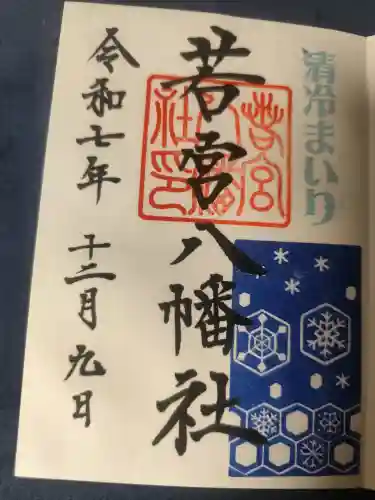 清冷まいり
若宮八幡社
若宮八幡社印
令和七年 十二月九日